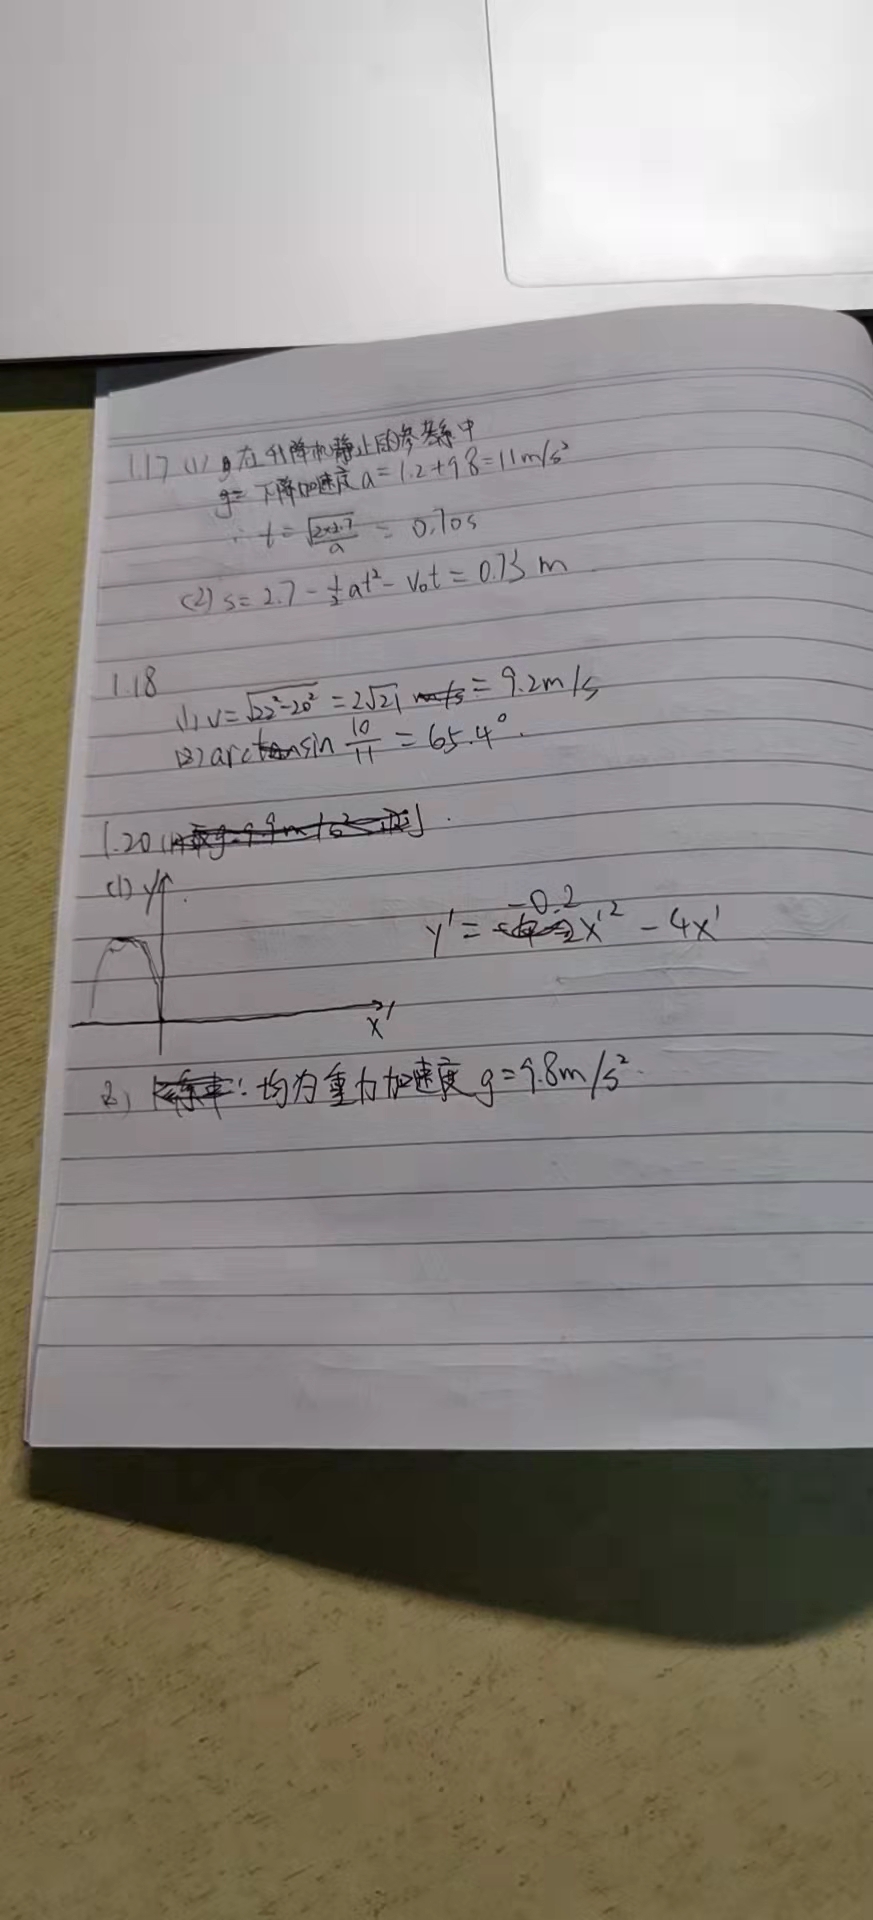 1.17 (1) 在升降机静止的参考系中
g= 下降加速度 a=1.2+9.8=11m/s²
∴ t=√(2×2.7/a) = 0.70s
(2) s=2.7-½at²-V₀t=0.73 m
1.18
(1) v=√(22²-20²)=2√21 m/s=9.2m/s
(2) arcsin 10/11=65.4°.
1.20
(1) y
y'=-0.2x'²-4x'
x'
2) 均为重力加速度g=9.8m/s².